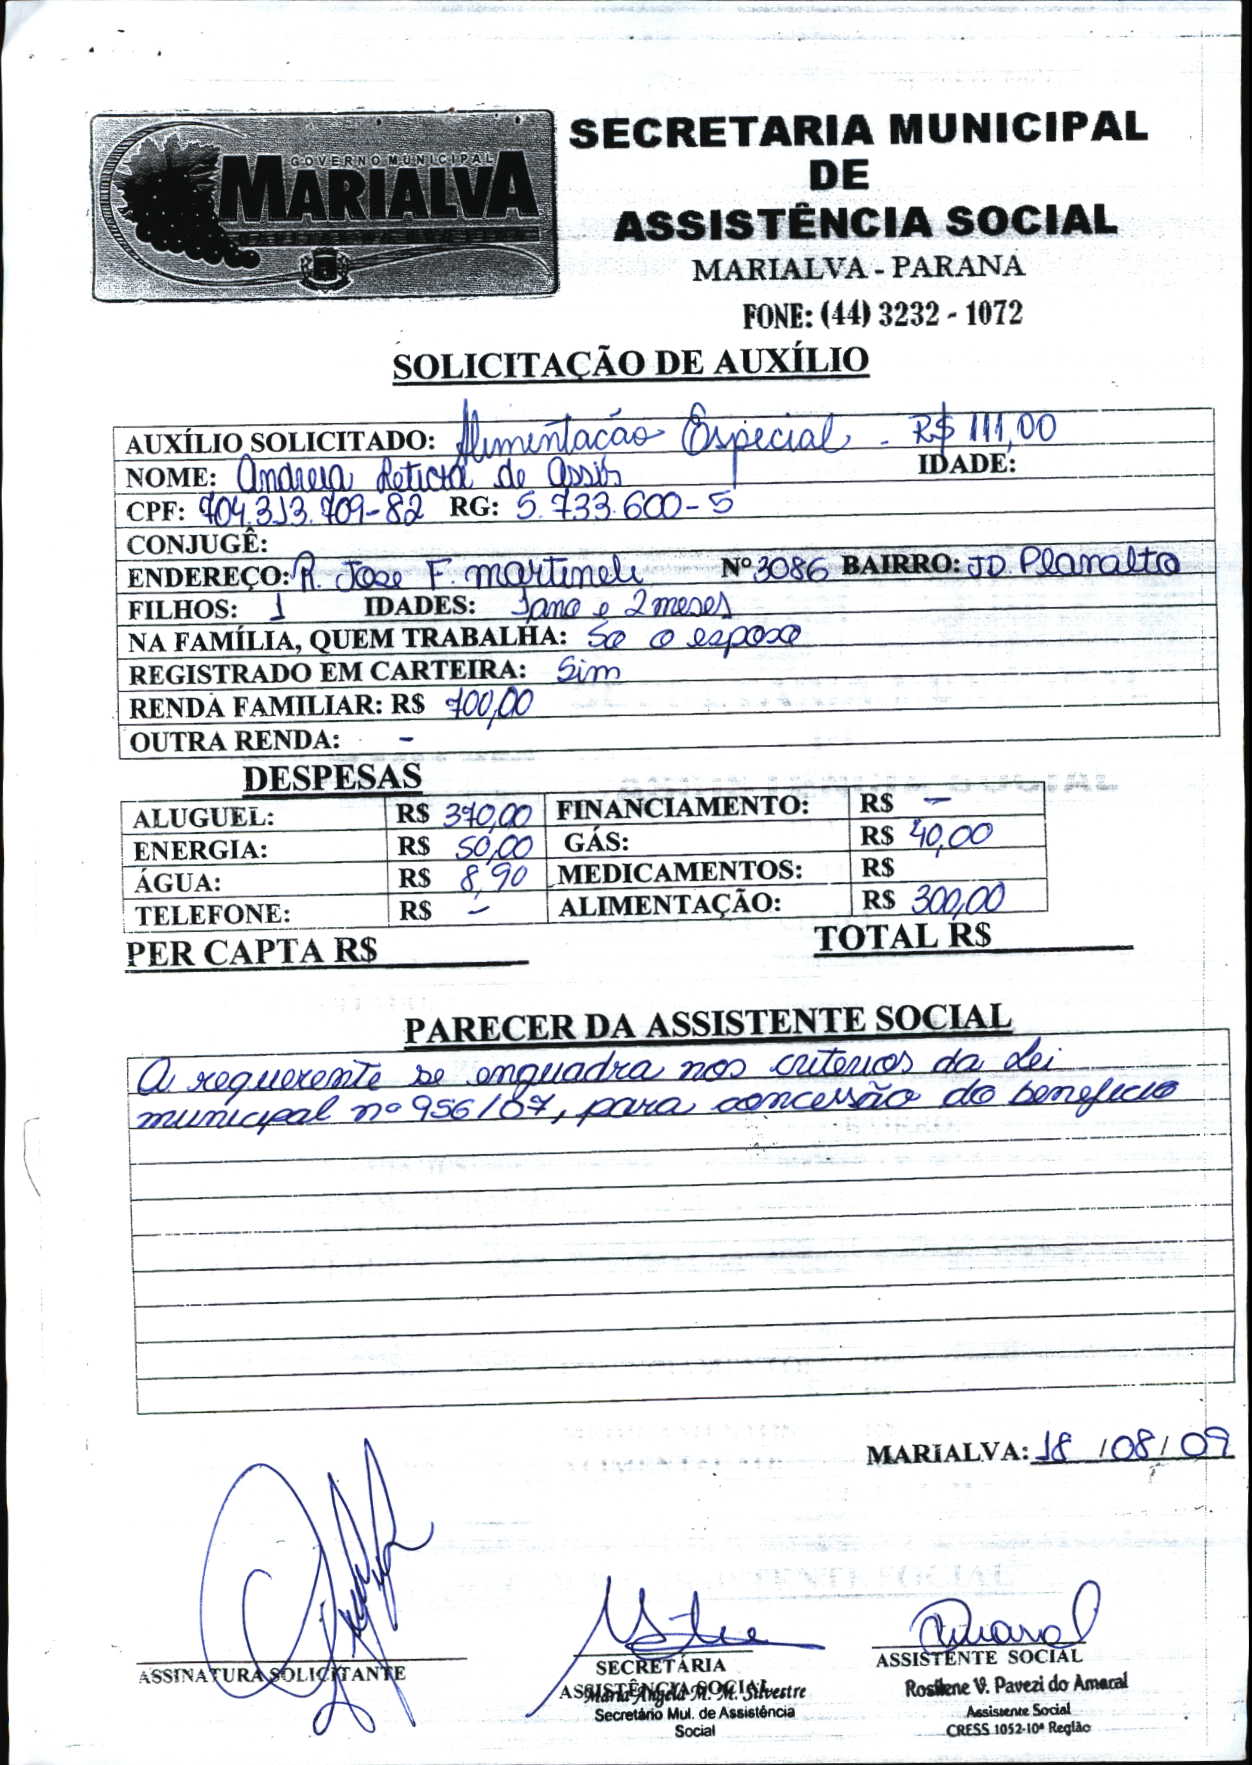 GOVERNO MUNICIPAL
MARIALVA
SECRETARIA MUNICIPAL
DE
ASSISTÊNCIA SOCIAL
MARIALVA - PARANA
FONE: (44) 3232 - 1072
SOLICITAÇÃO DE AUXÍLIO
AUXÍLIO SOLICITADO: Alimentacão Especial - R$ 111,00
NOME: Andreia Leticia de Assis IDADE:
CPF: 704.313.709-82 RG: 5.733.600-5
CONJUGÊ:
ENDEREÇO: R. Jose F. martineli Nº 3086 BAIRRO: JD. Planalto
FILHOS: 1 IDADES: 1ano e 2 meses
NA FAMÍLIA, QUEM TRABALHA: So o esposo
REGISTRADO EM CARTEIRA: Sim
RENDA FAMILIAR: R$ 700,00
OUTRA RENDA: -
DESPESAS
ALUGUEL: R$ 370,00 FINANCIAMENTO: R$ -
ENERGIA: R$ 50,00 GÁS: R$ 40,00
ÁGUA: R$ 8,90 MEDICAMENTOS: R$
TELEFONE: R$ - ALIMENTAÇÃO: R$ 300,00
PER CAPTA R$ TOTAL R$
PARECER DA ASSISTENTE SOCIAL
A requerente se enquadra nos criterios da Lei
municipal nº 956/07, para concessão do beneficio
MARIALVA: 18 /08/ 09
ASSINATURA SOLICITANTE
SECRETÁRIA
ASSISTÊNCIA SOCIAL
Maria Angela M. M. Silvestre
Secretário Mul. de Assistência
Social
ASSISTENTE SOCIAL
Rosilene V. Pavezi do Amaral
Assistente Social
CRESS 1052-10ª Região